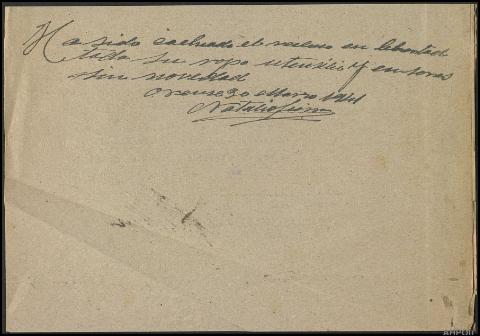 Ha sido cacheado el recluso en libertad
toda su ropa utensilio y enseres
sin novedad
Orense 30 Marzo 1941
Natalio